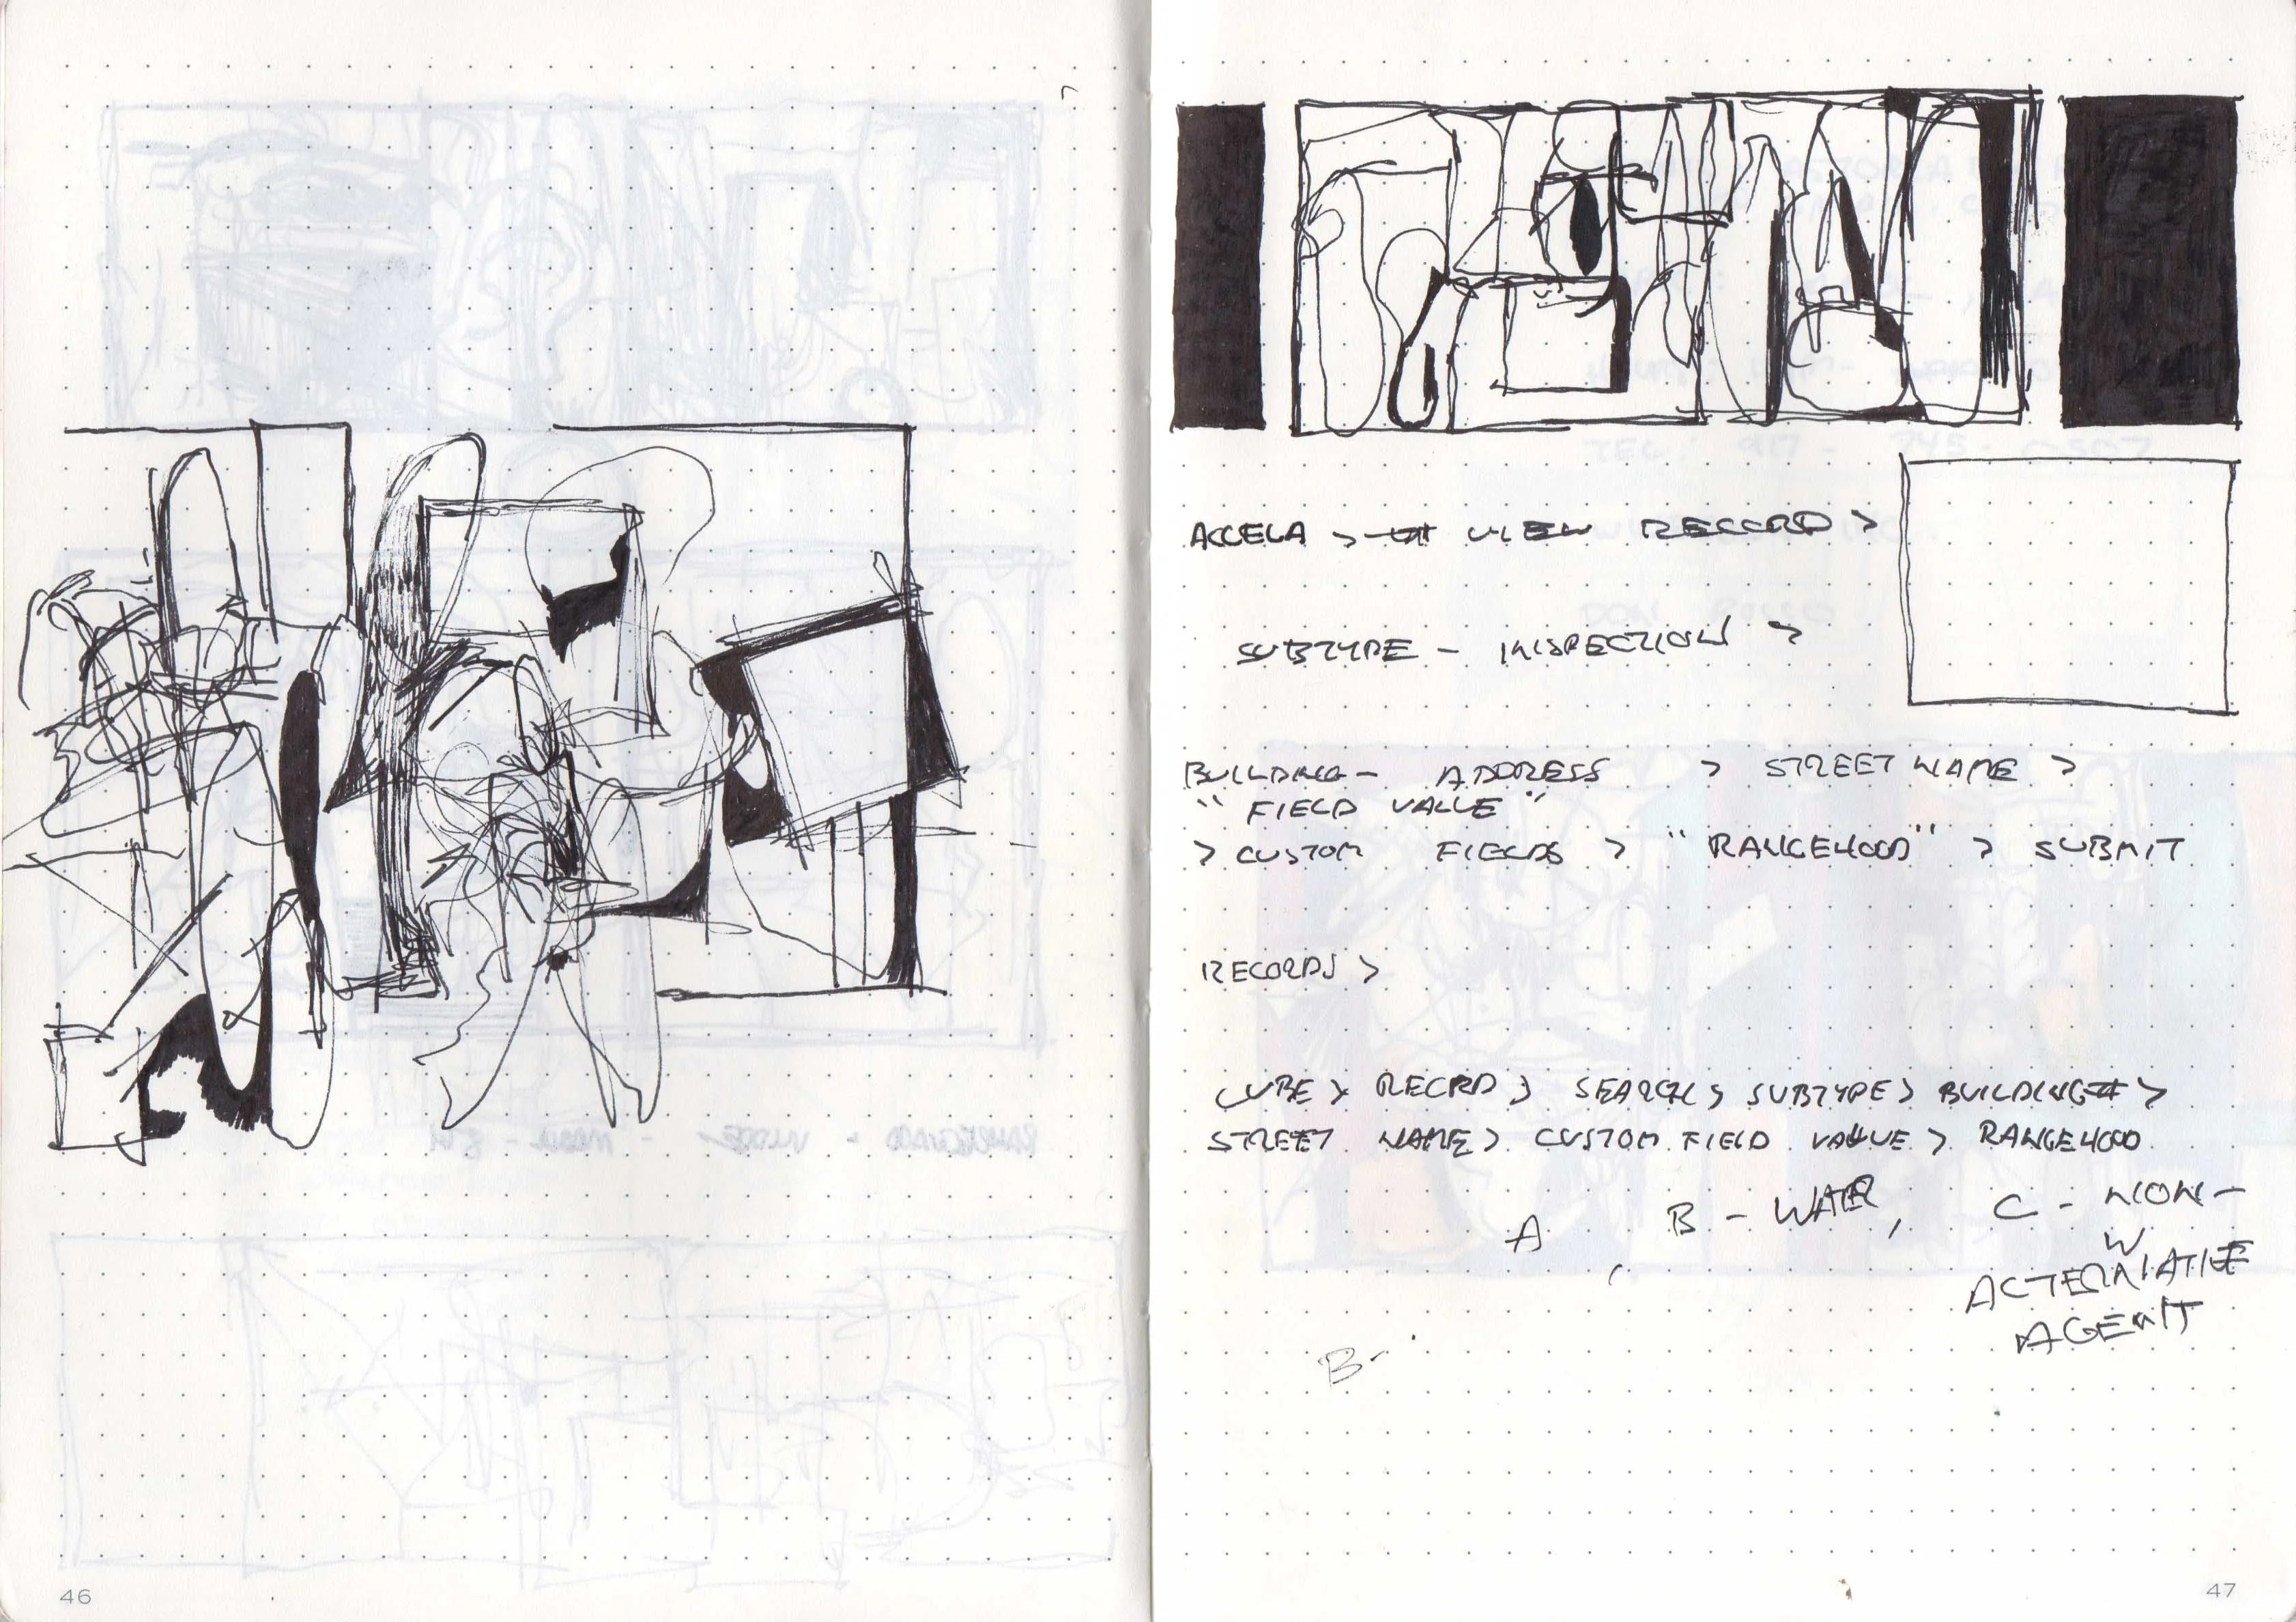 ACCELA > VIEW RECORD >
SUBTYPE - INSPECTION >
BUILDING - ADDRESS > STREET NAME >
"FIELD VALUE"
> CUSTOM FIELDS > "RANGEHOOD" > SUBMIT
RECORDS >
CUBE > RECRD > SEARCH > SUBTYPE > BUILDING# >
STREET NAME > CUSTOM FIELD VALUE > RANGEHOOD
A , B - WATER, C - NON-
W
ALTERNATIVE
AGENT
B-
46
47